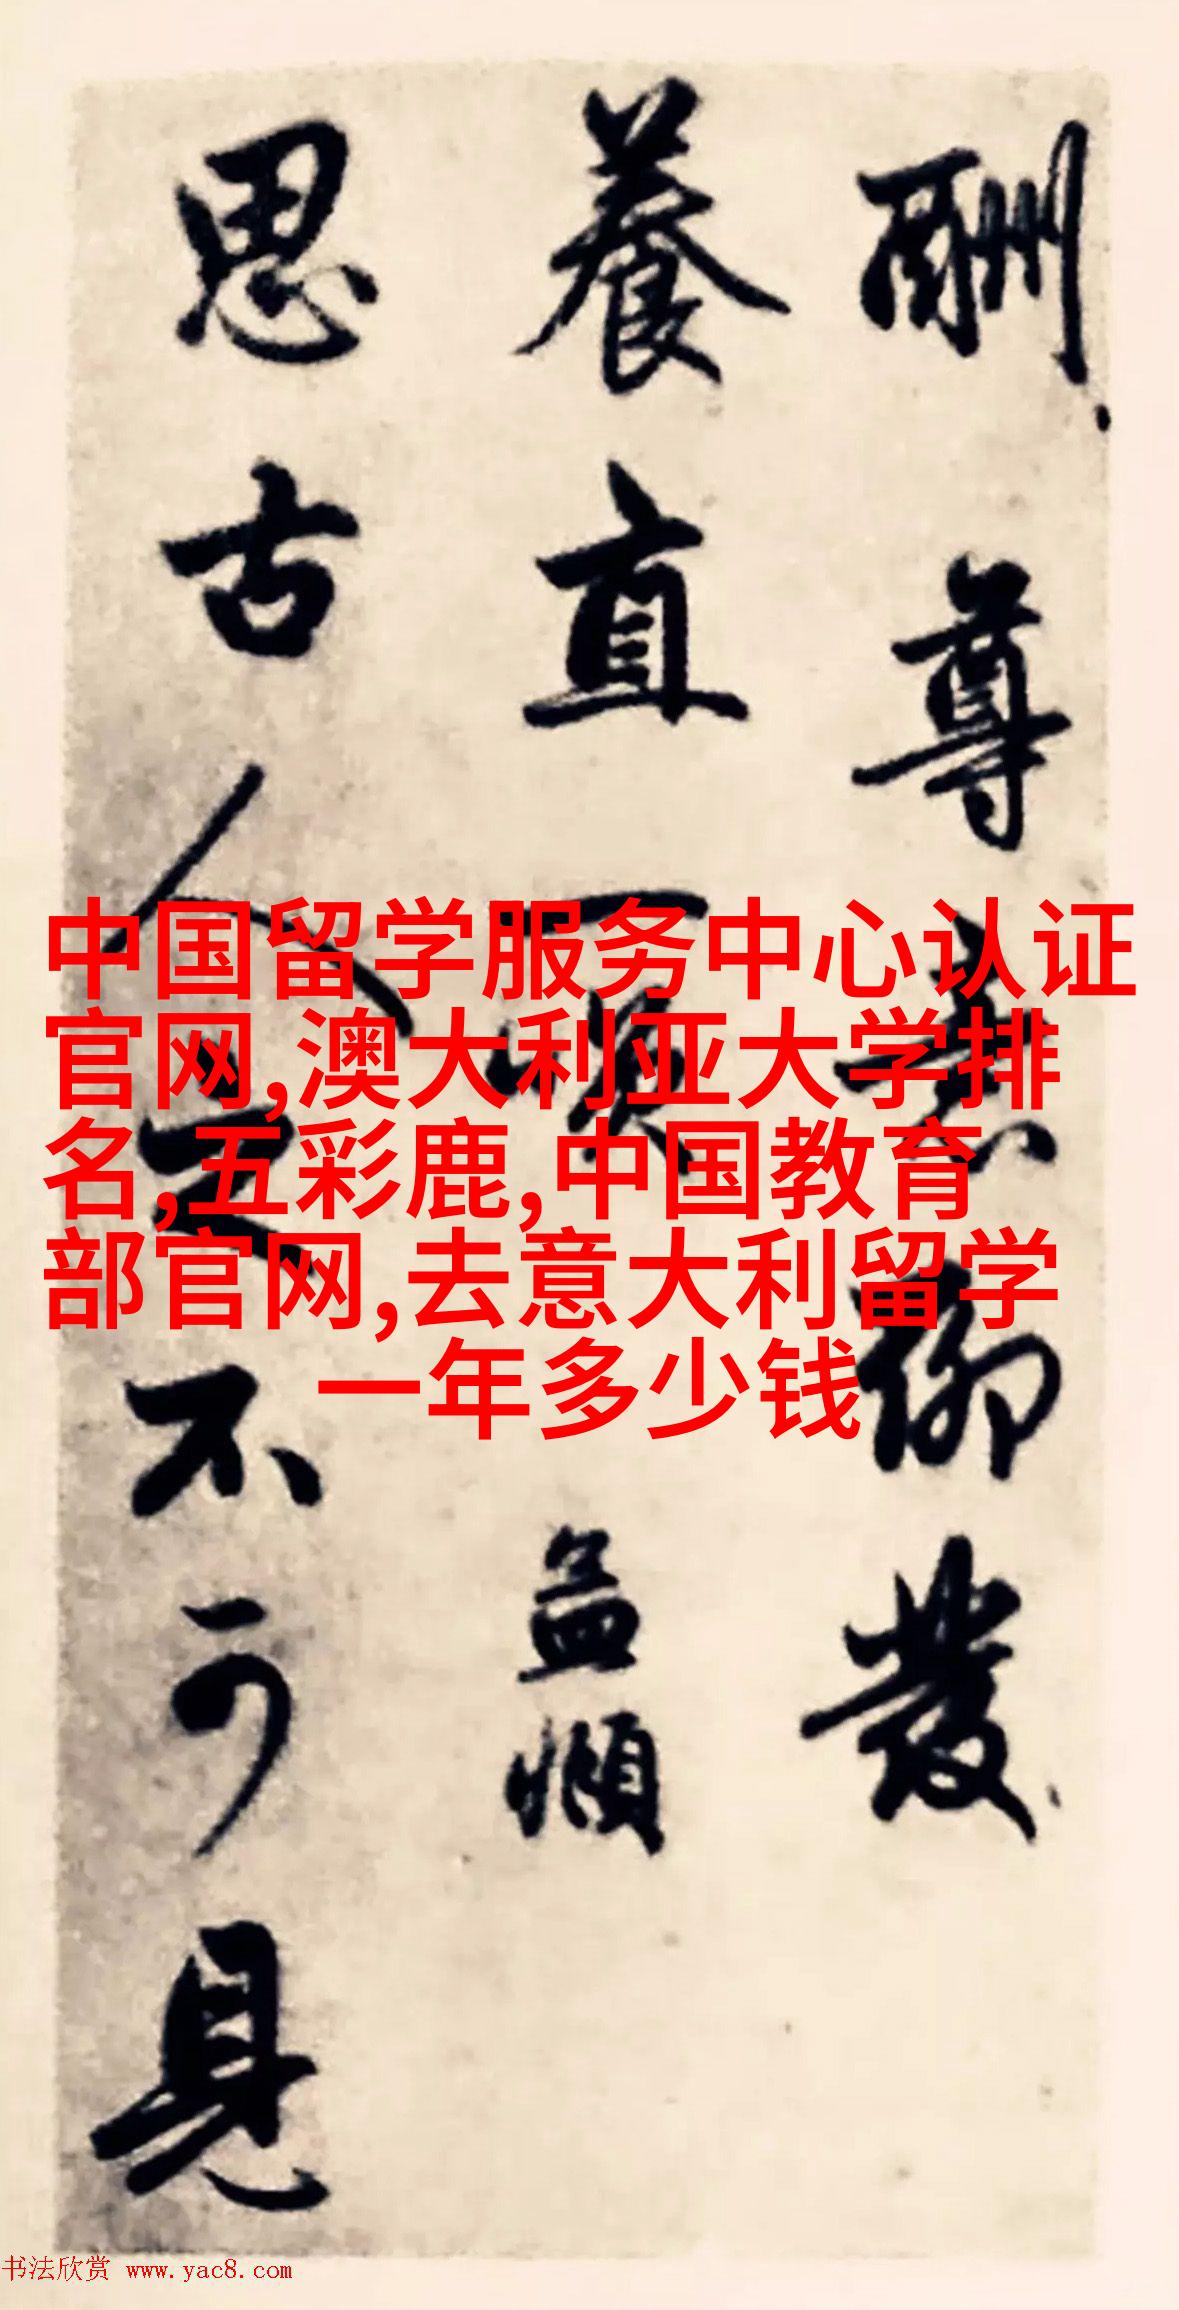 酬尊意聊發
養直一嘆孟頫
思古人之不可見
中国留学服务中心认证
官网,澳大利亚大学排
名,五彩鹿,中国教育
部官网,去意大利留学
一年多少钱
书法欣赏 www.yac8.com